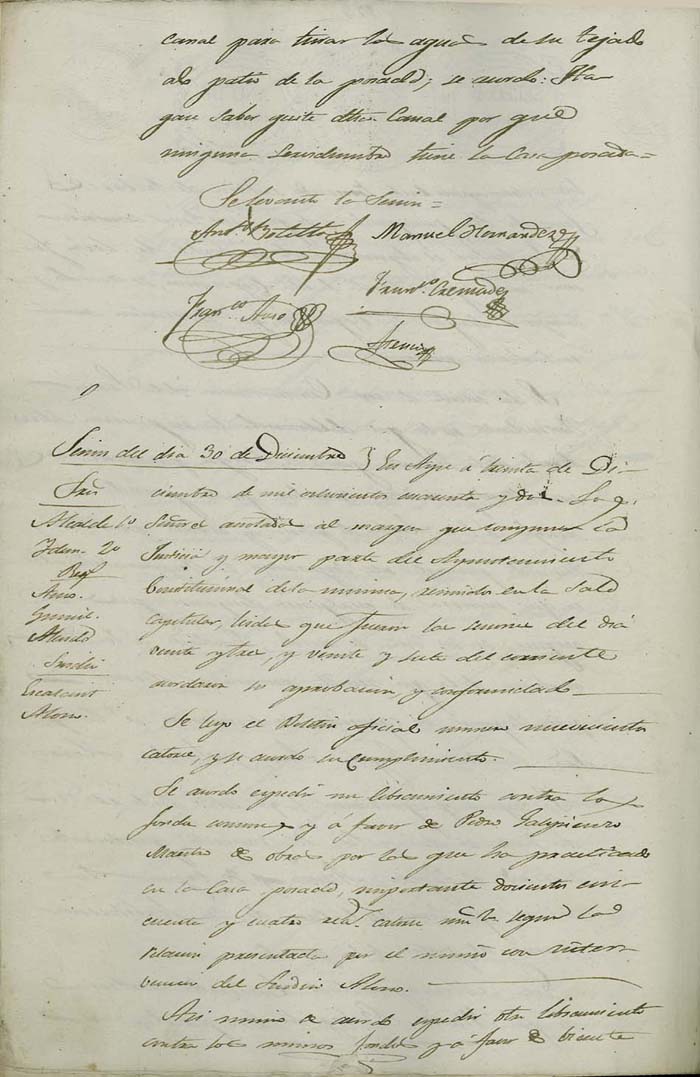 canal para tirar las aguas de su tejado
al patio de la posada; se acordo: Ha
gase saber quite dicha Canal por que
ninguna servidumbre tiene la Casa posada=
Se levanto la Sesion=
Manuel Hernandez
Fran.co Aso
Sesion del dia 30 de Diciembre } En Aspe á treinta de Di-
Sres
ciembre de mil ochocientos cincuenta y dos. Los
Alcalde 1º
Señores anotados al margen que componen la
Idem. 2º
Justicia y mayor parte del Ayuntamiento
Reg
Constitucional de la misma, reunidos en la Sala
capitular, leidas que fueron las sesiones del dia
veinte y tres, y veinte y siete del corriente
Sindico
acordaron su aprobacion, y conformidad
Se leyo el Boletin oficial numero novecientos
catorce, y se acordo su cumplimiento.
Se acordo espedir un libramiento contra los
fondos comunes y a favor de Pedro
Maestro de obras por las que ha practicado
en la Casa posada, importante doscientos cin-
cuenta y cuatro rea.s catorce mrs segun la
relacion presentada por el mismo con inter-
vencion del Sindico
Asi mismo se acordo espedir otro libramiento
contra los mismos fondos y á favor de Vicente